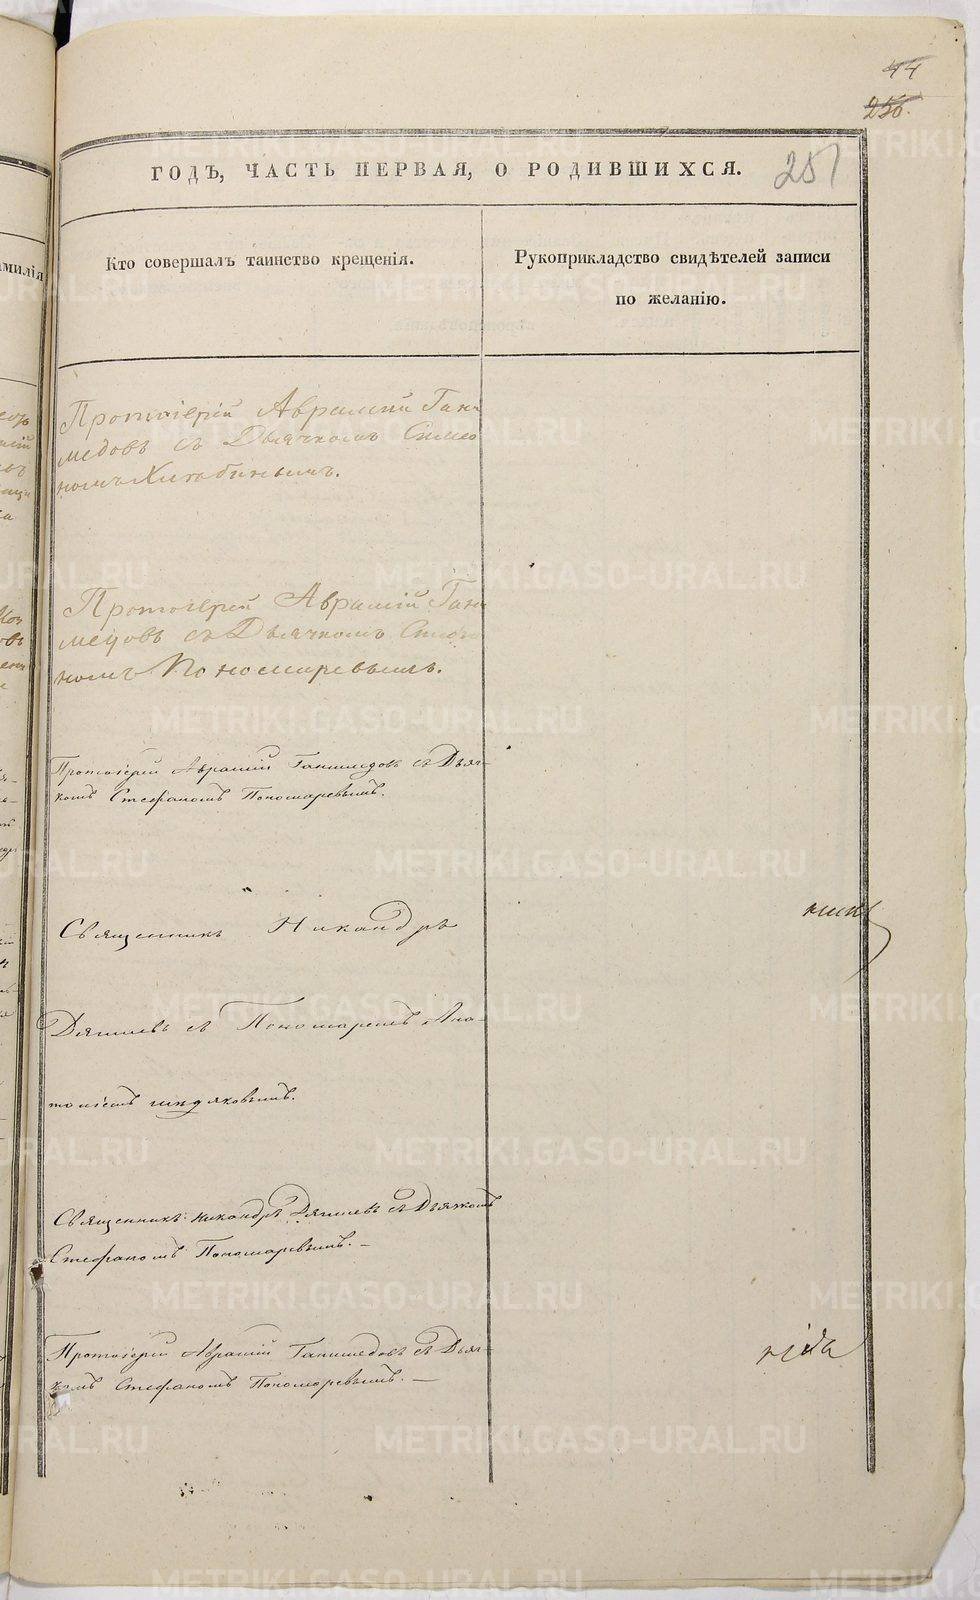 44
256.
ГОДЪ, ЧАСТЬ ПЕРВАЯ, О РОДИВШИХСЯ. 257
Кто совершалъ таинство крещенія.
Рукоприкладство свидѣтелей записи
по желанію.
Протоіерей Аврамій Гани
медовъ съ Дьячкомъ Симео
номъ Хлабинымъ.
Протоіерей Аврамій Гани
медовъ съ Дьячкомъ
Пономаревымъ.
Протоіерей Аврамій Ганимедов съ Дьяч-
комъ Стефаномъ Пономаревымъ.
Священникъ Никандръ
Дягилевъ съ Пономаремъ
Священникъ Никандръ Дягилевъ съ Дьячкомъ
Стефаномъ Пономаревымъ. —
Протоіерей Аврамій Ганимедовъ съ Дьяч-
комъ Стефаномъ Пономаревымъ. —
METRIKI.GASO-URAL.RU